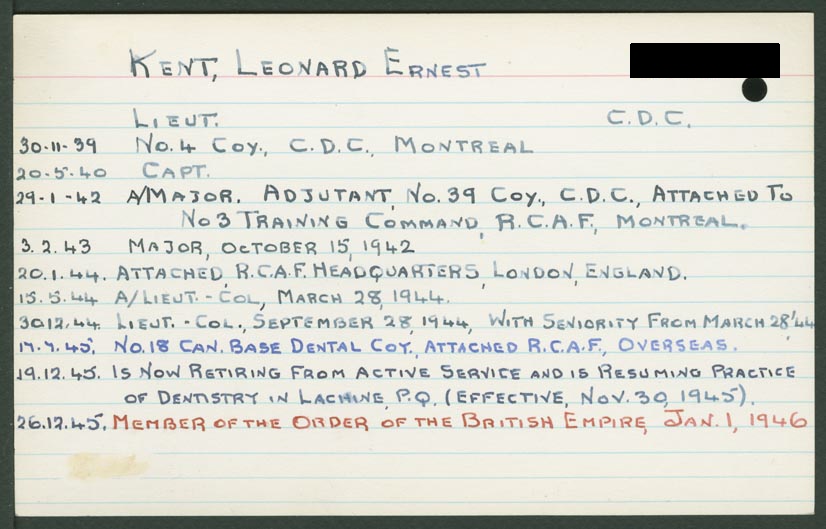 KENT, LEONARD ERNEST
LIEUT. C.D.C.
30-11-39 NO.4 COY., C.D.C., MONTREAL
20-5-40 CAPT.
29-1-42 A/MAJOR. ADJUTANT, NO.39 COY., C.D.C., ATTACHED TO
NO3 TRAINING COMMAND, R.C.A.F., MONTREAL.
3.2.43 MAJOR, OCTOBER 15, 1942
20.1.44. ATTACHED R.C.A.F. HEADQUARTERS, LONDON, ENGLAND.
15.5.44 A/LIEUT.-COL, MARCH 28, 1944.
30.12.44. LIEUT.-COL., SEPTEMBER 28, 1944, WITH SENIORITY FROM MARCH 28'44
17.7.45. NO.18 CAN. BASE DENTAL COY., ATTACHED R.C.A.F., OVERSEAS.
19.12.45. IS NOW RETIRING FROM ACTIVE SERVICE AND IS RESUMING PRACTICE
OF DENTISTRY IN LACHINE, P.Q. (EFFECTIVE, NOV. 30, 1945).
26.12.45. MEMBER OF THE ORDER OF THE BRITISH EMPIRE, JAN. 1, 1946